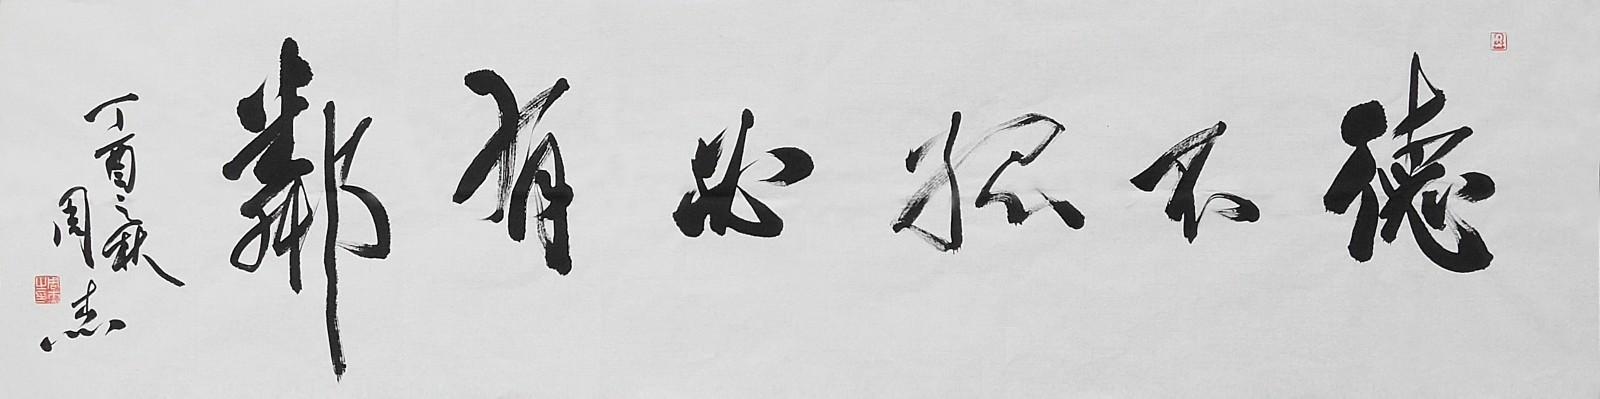 德不孤必有鄰
丁酉之秋
周杰